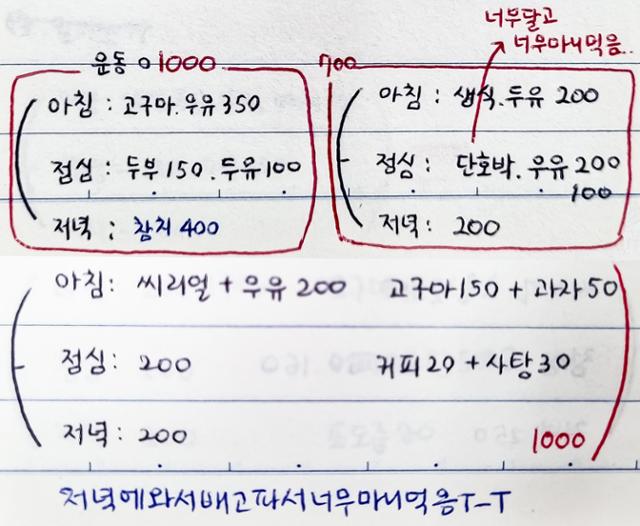 운동 0 1000
아침 : 고구마. 우유 350
점심 : 두부 150. 두유 100
저녁 : 참치 400
700
너무달고
너무마니먹음..
아침 : 생식. 두유 200
점심 : 단호박. 우유 200
100
저녁 : 200
아침 : 씨리얼 + 우유 200 고구마 150 + 과자 50
점심 : 200 커피 20 + 사탕 30
저녁 : 200 1000
저녁에와서배고파서너무마니먹음T-T